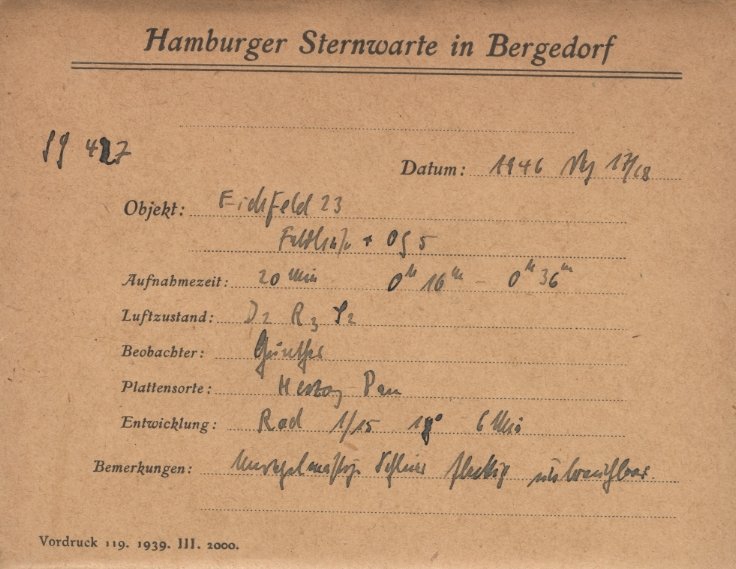 Hamburger Sternwarte in Bergedorf
427
Datum: 1946 17/18
Objekt: Eichfeld 23
+ OG 5
Aufnahmezeit: 20 Min 0h 16m - 0h 36m
Luftzustand: D2 R3 S2
Beobachter: Günther
Plattensorte: Herzog Pan
Entwicklung: Rod 1/15 18° 6 Min
Bemerkungen: Unregelmäßige Schleier fleckig unbrauchbar.
Vordruck 119. 1939. III. 2000.